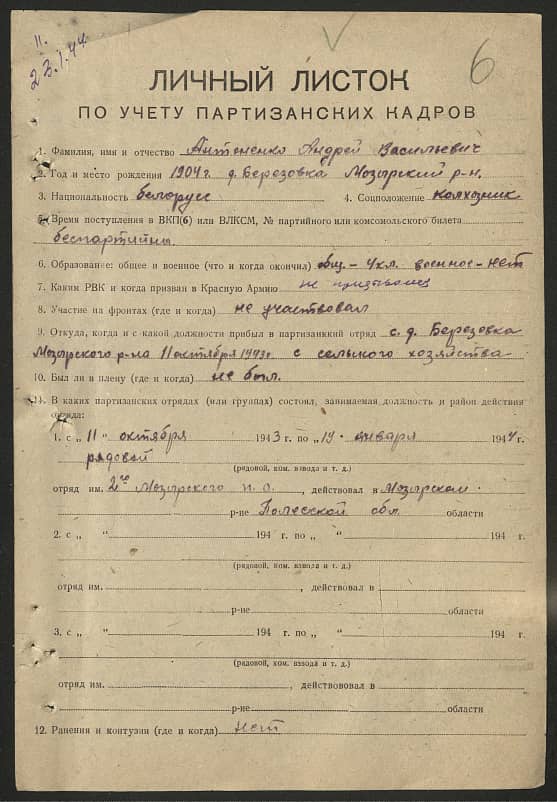 11.
23.1.44
6
ЛИЧНЫЙ ЛИСТОК
ПО УЧЕТУ ПАРТИЗАНСКИХ КАДРОВ
1. Фамилия, имя и отчество Антоненко Андрей Васильевич
2. Год и место рождения 1904г. д. Березовка Мозырский р-н.
3. Национальность белорусс 4. Соцположение колхозник
5. Время поступления в ВКП(б) или ВЛКСМ, № партийного или комсомольского билета
беспартийный
6. Образование: общее и военное (что и когда окончил) общ.- 4 кл. военное - нет
7. Каким РВК и когда призван в Красную Армию не призывался
8. Участие на фронтах (где и когда) не участвовал
9. Откуда, когда и с какой должности прибыл в партизанкий отряд с. д. Березовка
Мозырского р-на 11 октября 1943г. с сельского хозяйства
10. Был ли в плену (где и когда) не был.
11. В каких партизанских отрядах (или группах) состоял, занимаемая должность и район действия
отряда:
1. с „ 11 " октября 1943 г. по „ 14 " января 1944 г.
рядовой
(рядовой, ком. взвода и т. д.)
отряд им. 2го Мозырского п. о., действовал в Мозырском
р-не Полесской обл. области
2. с „ " 194 г. по „ " 194 г.
(рядовой, ком. взвода и т. д.)
отряд им. , действовал в
р-не области
3. с „ " 194 г. по „ " 194 г.
(рядовой, ком. взвода и т. д.)
отряд им. , действововал в
р-не области
12. Ранения и контузии (где и когда) нет